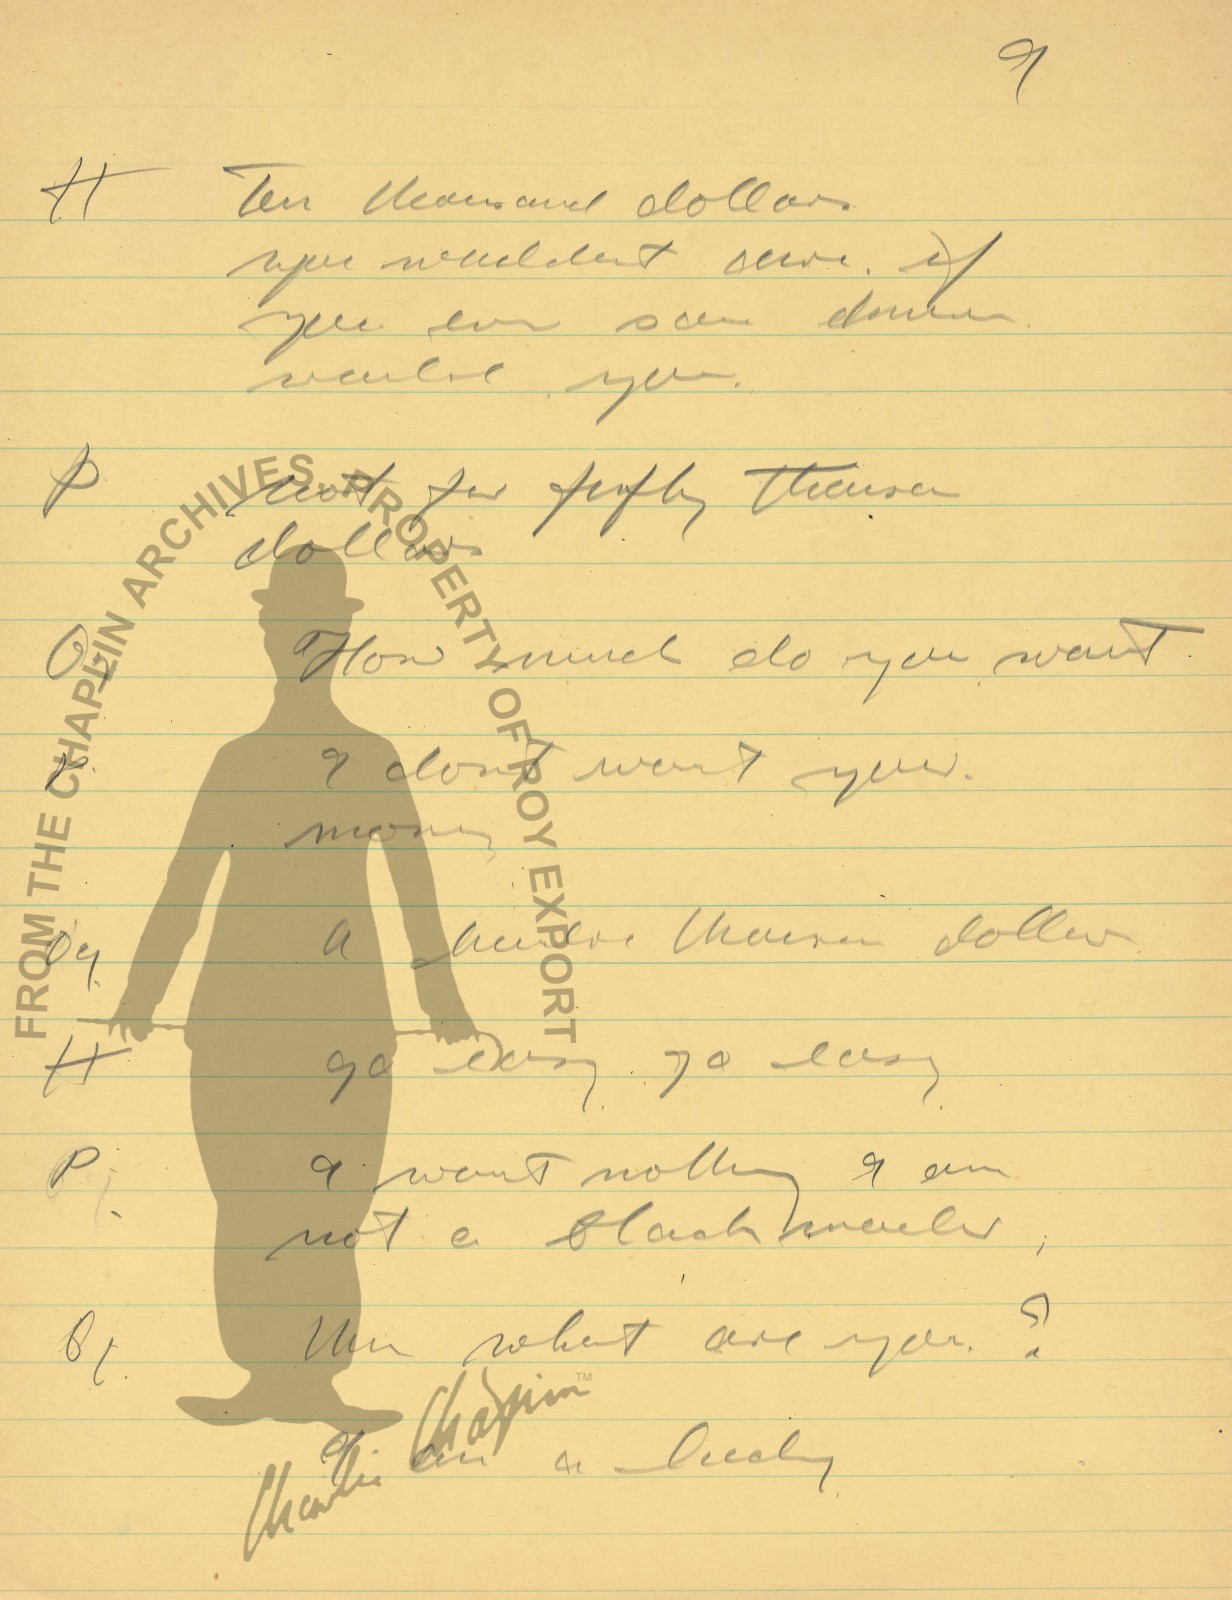 9
H Ten thousand dollars
you wouldent care. if
you ever saw
would you.
P not for fifty thousan
dollars
O How much do you want
P. I dont want your
money
Og. A hundre thousan dollers
H go easy go easy
P. I want nothing I am
not a blackmailer,
Og. Then what are you.?
I am a lady
FROM THE CHAPLIN ARCHIVES. PROPERTY OF ROY EXPORT
Charlie Chaplin TM